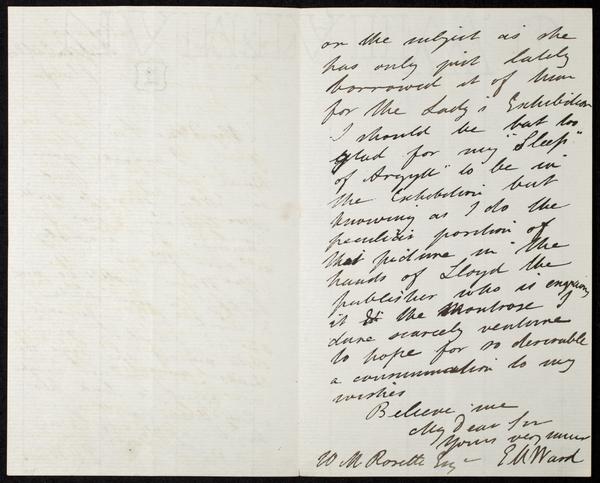 on the subject as she
has only just lately
borrowed it of him
for the Lady's Exhibition
I should be but too
glad for my "Sleep
of Argyll" to be in
the Exhibition but
knowing as I do the
peculiar position of
that picture in the
hands of Lloyd the
publisher who is engraving
it & the Montrose I
dare scarcely venture
to hope for so desirable
a consummation to my
wishes
Believe me
My Dear Sir
Yours very much
W M Rosetti Esqr E M Ward